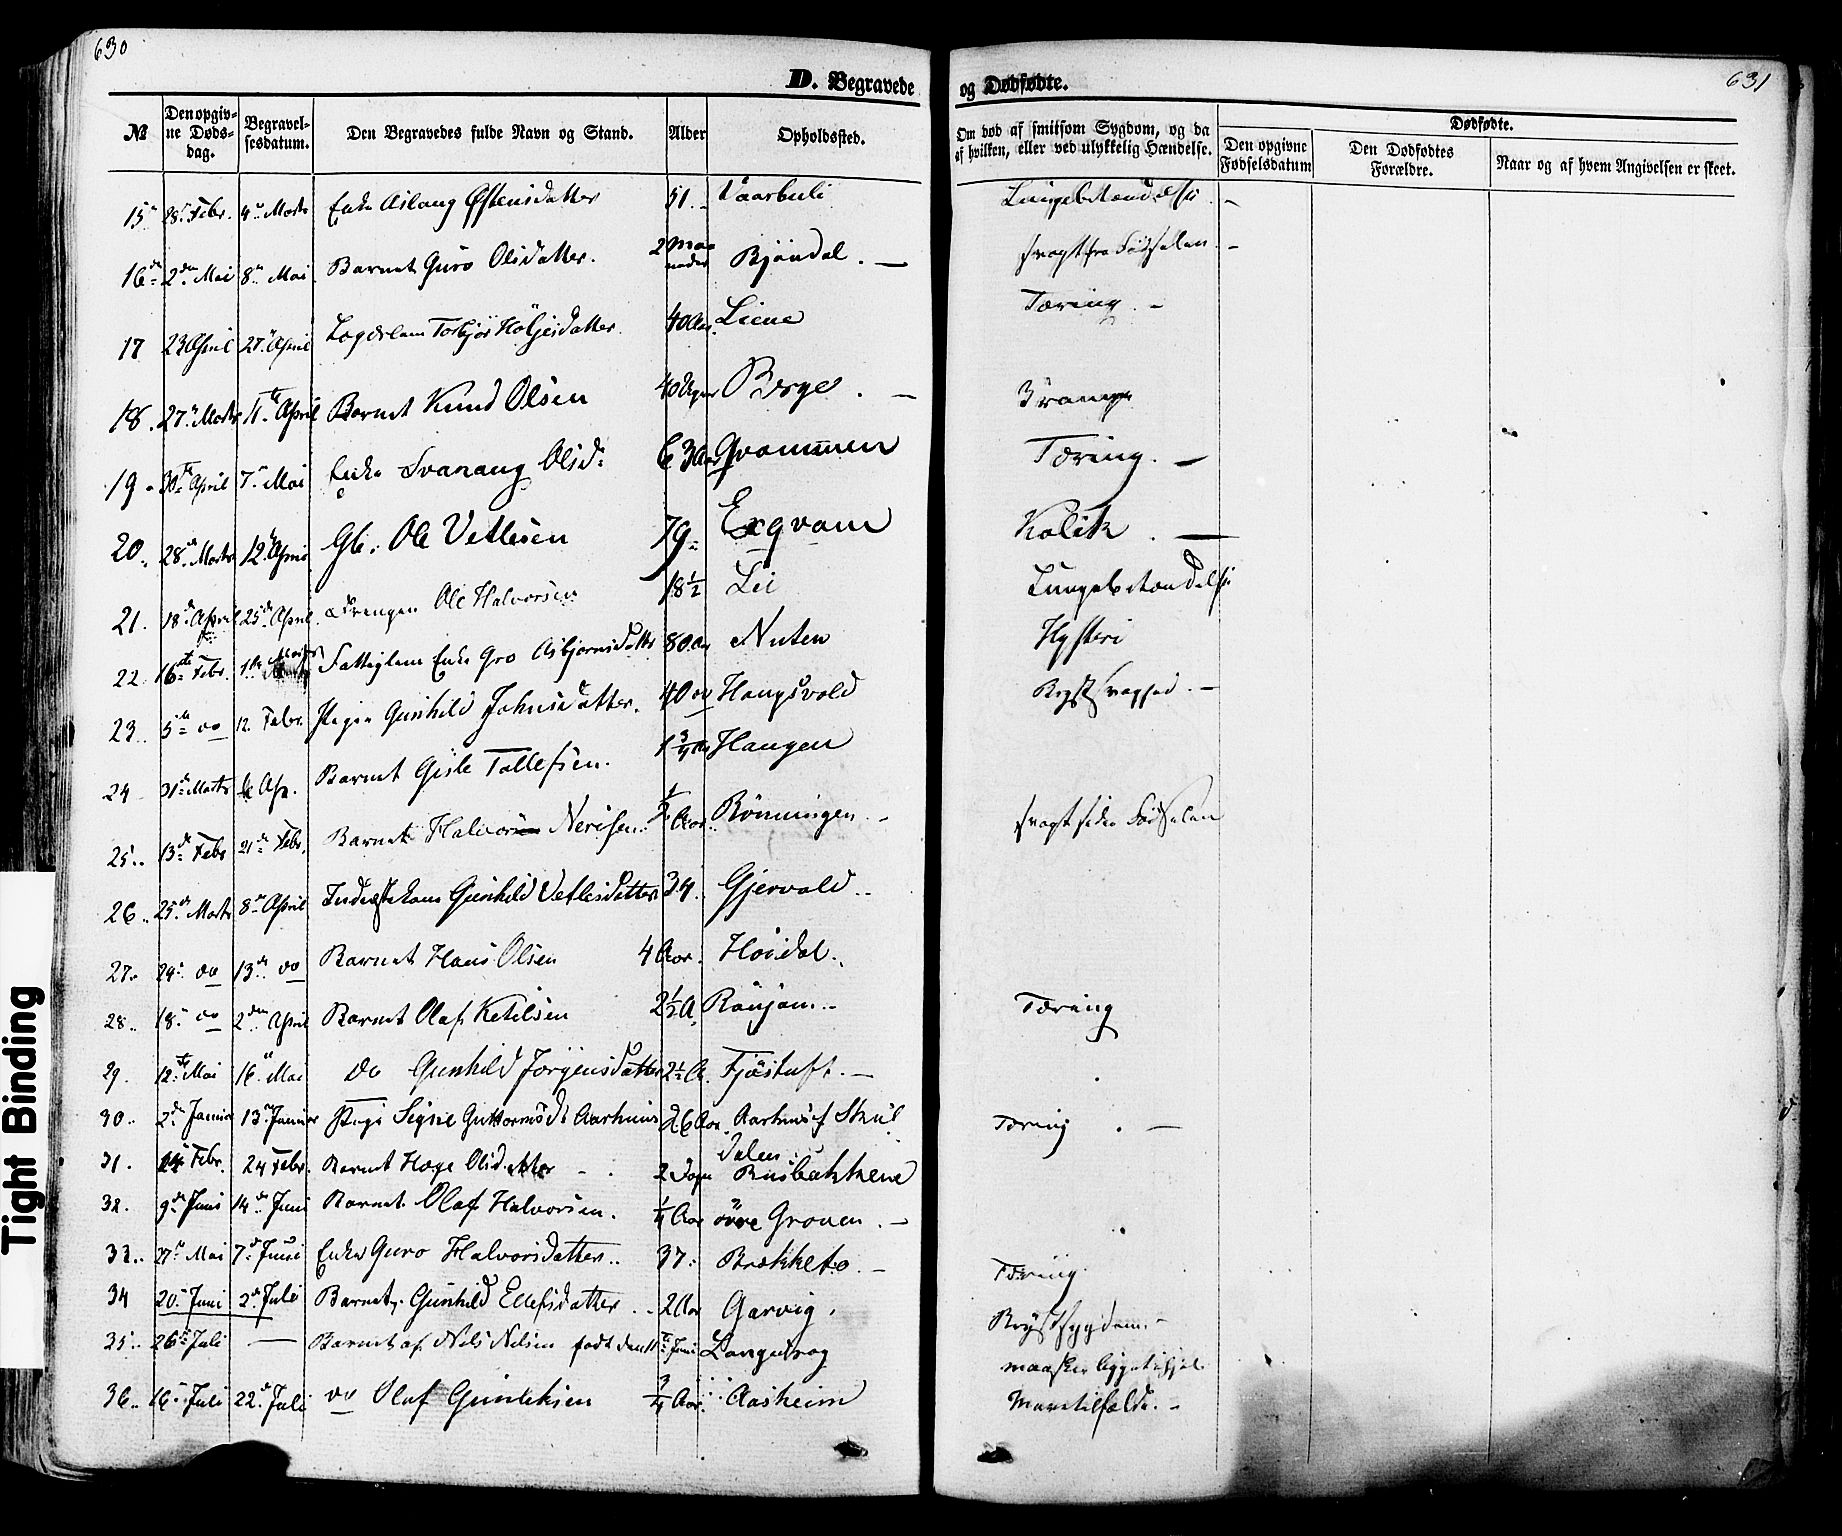 630
D. Begravede
og Dødfødte.
631
№ Den opgivne Dødsdag. Begravelsesdatum. Den Begravedes fulde Navn og Stand. Alder Opholdssted. Om død af smitsom Sygdom, og da af hvilken, eller ved ulykkelig Hændelse. Dødfødte. Den opgivne Fødselsdatum Den Dødfødtes Forældre. Naar og af hvem Angivelsen er skeet.
15 28 Febr. 4 Marts Enke Aslaug Østensdatter 51. Vaarbuli Lungebetændelse
16 2den Mai 8 Mai Barnet Guro Olsdatter. 2 Maaneder Bjøndal. svagt fra Fødselen.
17 23 April 27 April Lægdslem Torbjør Høljesdatter 40 Aar Liene Tæring.
18. 27 Marts 11te April Barnet Knud Olsen 40 Uger Berge. Krampe
19 30te April 7 Mai Enke Svanaug Olsd: 63 Aar Qvammen Tæring.
20. 28de Marts 12 April Gbr. Ole Vetlesen 79 Exqvam Kolik.
21. 18de April 25de April. Drengen Ole Halvorsen 18½ Lii Lungebetændelse
22 16de Febr. 1ste Marts Fattiglem Enke Gro Asbjørnsdatter 80 Aar Nuten Hysteri
23. 5te do 12. Febr. Pigen Gunhild Johnsdatter. 40 do Haugsvold Brystsvaghed.
24 31te Marts 6 Apr. Barnet Gisle Tollefsen. 1¾ Aar Haugen
25.. 13de Febr 21de Febr. Barnet Halvor Nerisen. ½ Aar.. Rønningen svagt siden Fødselen
26.. 25de Marts 8 April Inderstekone Gunhild Vetlesdatter 34. Gjervold..
27. 29 do 13de do Barnet Hans Olsen 4 Aar. Høidal.
28.. 18 do 2den April Barnet Olaf Ketilsen 2½ A. Rønjom Tæring
29. 12te Mai 16 Mai do Gunhild Jørgensdatter 2½ A. Fjøstuft.
30.. 2de Januar 13 Januar Pige Signe Guttormsd. Aarhuus 26 Aar. Aarhus i Skuldalen Tæring.
31. 14 Febr. 24 Febr. Barnet Hæge Olsdatter 2 Dage Rusbakkene
32. 9de Juni 14de Juni Barnet Olaf Halvorsen. ¼ Aar øvre Groven.
33.. 27 Mai 7de Juni Enke Guro Halvorsdatter.. 37: Brekketo. Tæring
34 20 Juni 2de Juli Barnet Gunhild Ellefsdatter 2 Aar Garvig. Brystsygdom.
35.. 26de Juli — Barnet af Nils Nilsen født den 11te Juni Langedrag maaskee ligget ihjel
36.. 16 Juli 22de Juli do Olaf Gunleiksen ¾ Aar Aasheim Maretilfælde.
Tight Binding